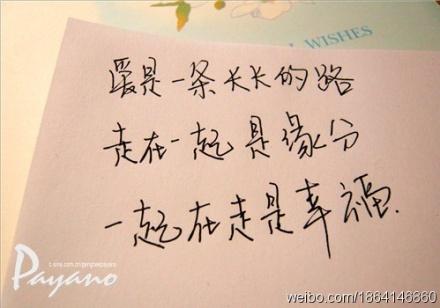 WISHES
爱是一条长长的路
走在一起是缘分
一起在走是幸福.
Payano
weibo.com/1864146860